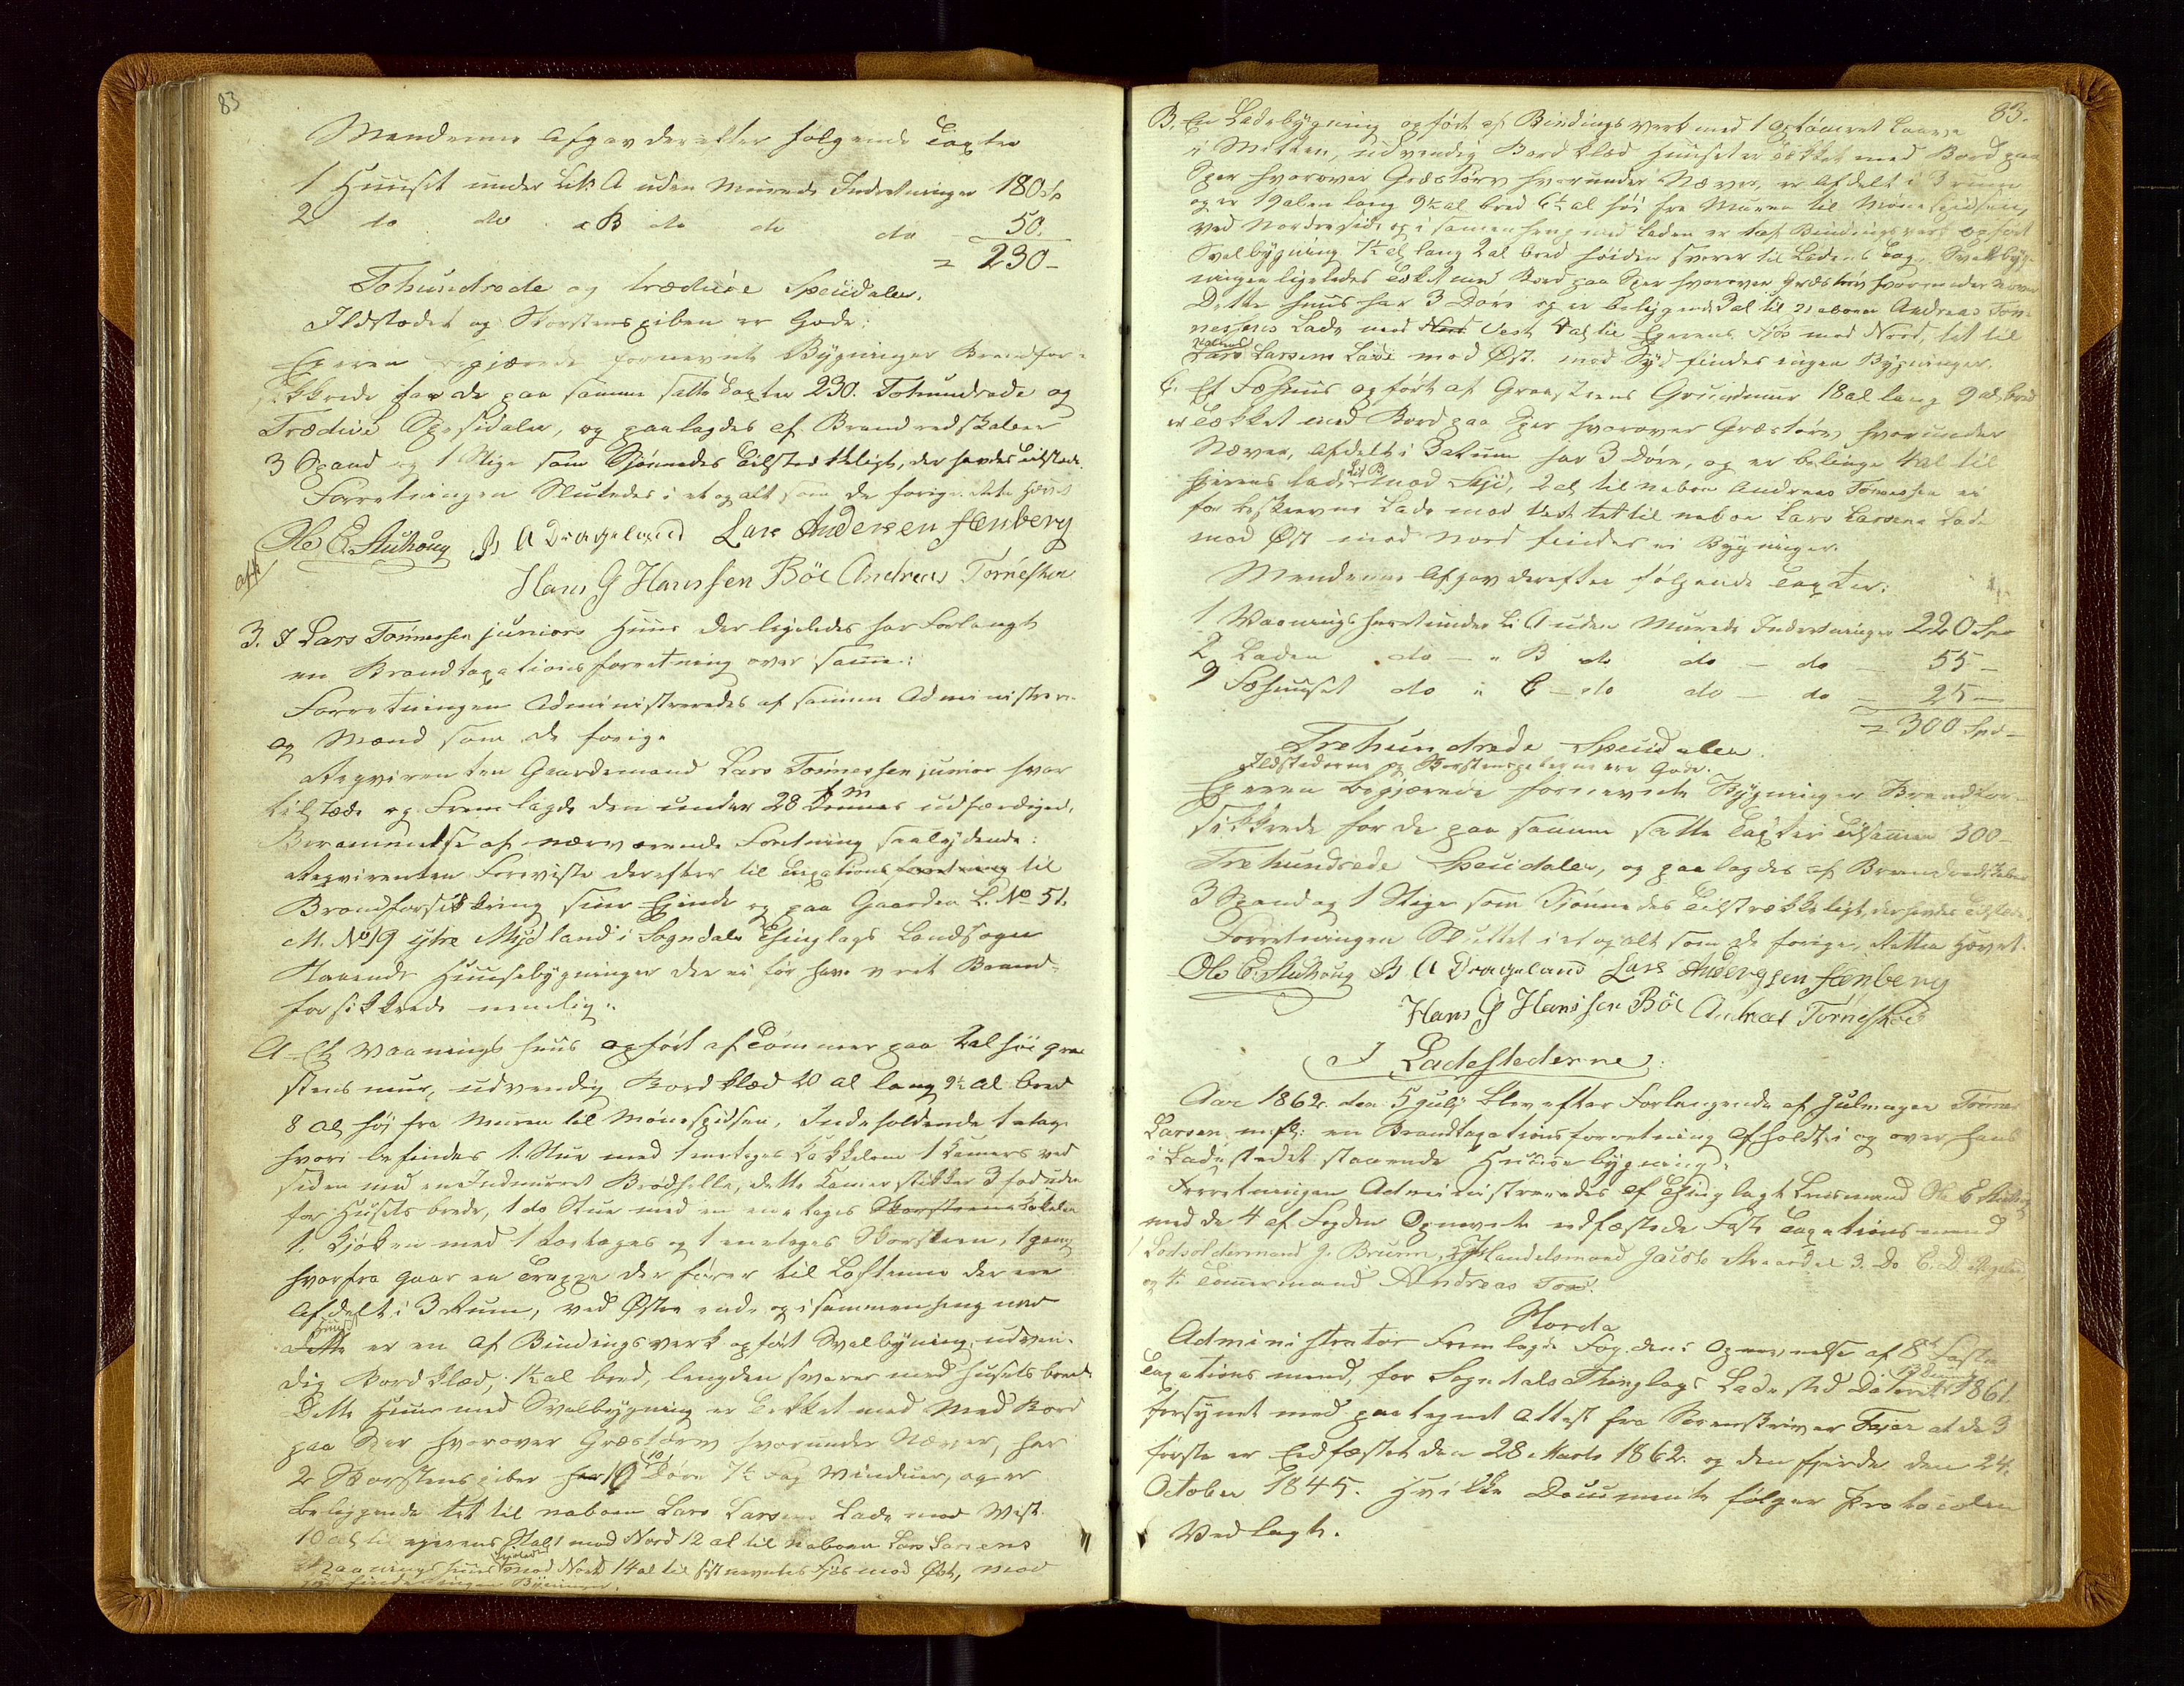 83
Mændenne Afgav derefter følgende Taxter
1 Huuset under Litr A uden Murede Indretninger 180 Sp
2 do do " B do do do 50.
= 230 -
Tohundrede og trædive Speidaler.
Ildstedet og Skorstenspiben er Gode.
Eieren begjærede fornevnte Bygninger Brandfor-
sikkrede for de paa samme satte Taxter 230. Tohundrede og
Trædive Spesidaler, og paalagdes af Brandredskaber
3 Spand og 1 Stige som skjønnedes tilstrækkeligt, der havdes tilstede.
Forretningen Sluttedes i et og alt som de forige. Retten hævet
Ole E. Stuhoug B A Drageland Lars Andersen Fænberg
Hans G Hanssen Böe Andreas Tørresen
3. I Lars Tønnessen juniors Huus der ligeledes har Forlangt
en Brandtaxationsforretning over samme:
Forretningen Administreredes af samme Administrer
og Mænd som de forige
Reqvirenten Gaardmand Lars Tønnessen junior hvor
tilstæde og Fremlagde den under 28 dennes udfærdiged
Beramelse af nærværende Foretning saalydende:
Reqvirenten Foreviste derefter til Taxationsforretning til
Brandforsikkring sine Eiende og paa Gaarden L. No 51.
M. No 19 ytre Mydland i Sogndals Thinglags Landsogn
staaende Huusebygninger der ei før have været Brand-
forsikkrede nemlig:
A. Et Vaanings huus opført af Tømmer paa 2 al høi graa
stens mur, udvendig Bordklæd 20 al lang 9½ al bred
8 al høi fra Muren til Mønespidsen, Indeholdende 1 etage
hvori befindes 1. Stue med 1 enetages Kakkelovn 1 Kammers ved
siden med en Indmuret Brødhelle, dette Kamer stikker 3 fod uden
for Husets brede, 1 do Stue med en enetages Skorsteens Kakelovn
1. Kjøken med 1 toetages og 1 enetages Skorsteen, 1 gang
hvorfra gaar en Trappe der fører til Loftene der ere
afdelt i 3 Rum, ved Østre ende og i sammenheng med
dette Huus er en af Bindingsverk opført Svalbyning, udven-
dig Bordklæd, 1½ al bred, lengden svarer med husets brede
Dette Huus med Svalbygning er tekket med Med Bord
paa Sper hvorover Græstørv hvorunder Næver, har
2 Skorstenspiber har 10 Døre 7½ Fag Vinduer, og er
beliggende tet til naboen Lars Larsens Lade mod Vest
10 al til egerens Stald mod Nord 12 al til Naboen Lars Larsens
Vaanings huus ligeledes mod Nord 14 al til sistnevntes Fjøs mod Øst, mod
Syd findes ingen Bygninger.
83.
B. En Ladebygning opført af Bindingsverk med 1 optømret Laave
i Mitten, udvendig Bordklæd Huuset er tekket med Bord paa
Sper hvorover Græstørv hvorunder Næver, er afdelt i 3 rum
og er 19 alen lang 9½ al bred 6½ al høi fra Muren til Mønespidsen,
ved Nordre side og i sammenheng med Laden er 1 af Bindingsverk opført
Svalbygning 7½ al lang 2 al bred høiden svarer til Ladens Tag. Svalbyg-
ningen ligeledes tekket med Bord paa Sper hvorover Græstørv hvorunder Næver
Dette huus har 3 Døre og er beliggende 3 al til Naboen Andreas Tøn-
nessens Lade mod Nord Vest 4 al til Egerens Fjøs mod Nord, tet til
Naboens Lars Larsens Lade mod Øst. mod Syd findes ingen Bygninger.
C. Et Fæhuus opført af Graasteens Grundmuur 18 al lang 9 al bred
er tekket med Bord paa Sper hvorover Græstørv hvorunder
Næver, Afdelt i 3 Rum har 3 Døre, og er belinge 4 al til
Eierens Lade Lit B mod Syd, 2 al til naboen Andreas Tønnessen er
for beskrevne Lade mod Vest tet til naboe Lars Larsens Lade
mod Øst mod Nord findes ei Bygninger.
Mændenne Afgav derefter følgende Taxter:
1 Vaaningshuset under Li A uden Murede Indretninger 220 Spe
2 Laden do - " B do do - do - 55 -
3 Fæhuuset do " C - do do - do - 25 -
= 300 Spd -
Trehundrede Speidaler.
Ildstederne og Skorstenspiberne ere Gode.
Egeren begjærede fornevnte Bygninger Brandfor-
sikkrede for de paa samme satte Taxter tilsammen 300 -
Trehundrede Speidaler, og paalagdes af Brandredskaber
3 Spand og 1 Stige som skjønnedes tilstrækkeligt, der havdes tilstede.
Forretningen Sluttet i et og alt som de forige, Retten hævet
Ole E. Stuhoug B A Drageland Lars Anderssen Fænberg
Hans G Hanssen Böe Andreas Tørresen
I Ladestederne:
Aar 1862 den 5 July blev efter Forlangende af Hjulmager Tønnes
Larsen m. fl: en Brandtaxationsforretning afholdt i og over hans
i Ladestedet staaende Huuse bygning.
Forretningen Administreredes af Thinglagt Lensmand Ole E Stuhoug
med de 4 af Fogden Opnevnte edfæstede Faste Taxationsmænd
1 Lodsoldermand J. Bruun, 2 Handelsmand Jacob 3. Do C. D.
og 4. Tømmermand Andreas Tori.
Horda
Administrator Fremlagde Fogdens Opnævnelse af 8 Faste
Taxationsmænd, for Sogndals Thinglags Ladested Dateret 1861.
forsynet med paategnet Attest fra Sorenskriver Feyer at de 3
første er Eedfæstet den 28 Marts 1862. og den fjerde den 24.
October 1845. Hvilke Documente følger Protocolen
Vedlagt.